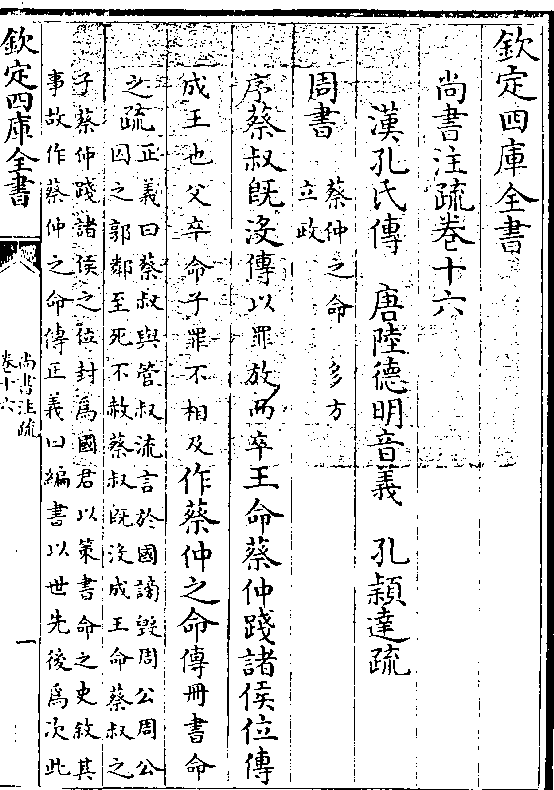 欽定四庫全書
尚書注疏卷十六
漢孔氏傳　唐陸德明音義　孔穎達疏
周書
蔡仲之命　多方
立政
序蔡叔既沒傳以罪放而卒王命蔡仲踐諸侯位傳
成王也父卒命子罪不相及作蔡仲之命傳冊書命
之疏正義曰蔡叔與管叔流言於國謗毀周公周公
囚之郭鄰至死不赦蔡叔既沒成王命蔡叔之
子蔡仲踐諸侯之位封為國君以策書命之史敘其
事故作蔡仲之命傳正義曰編書以世先後為次此
欽定四庫全書
尚書注疏
卷十六
一